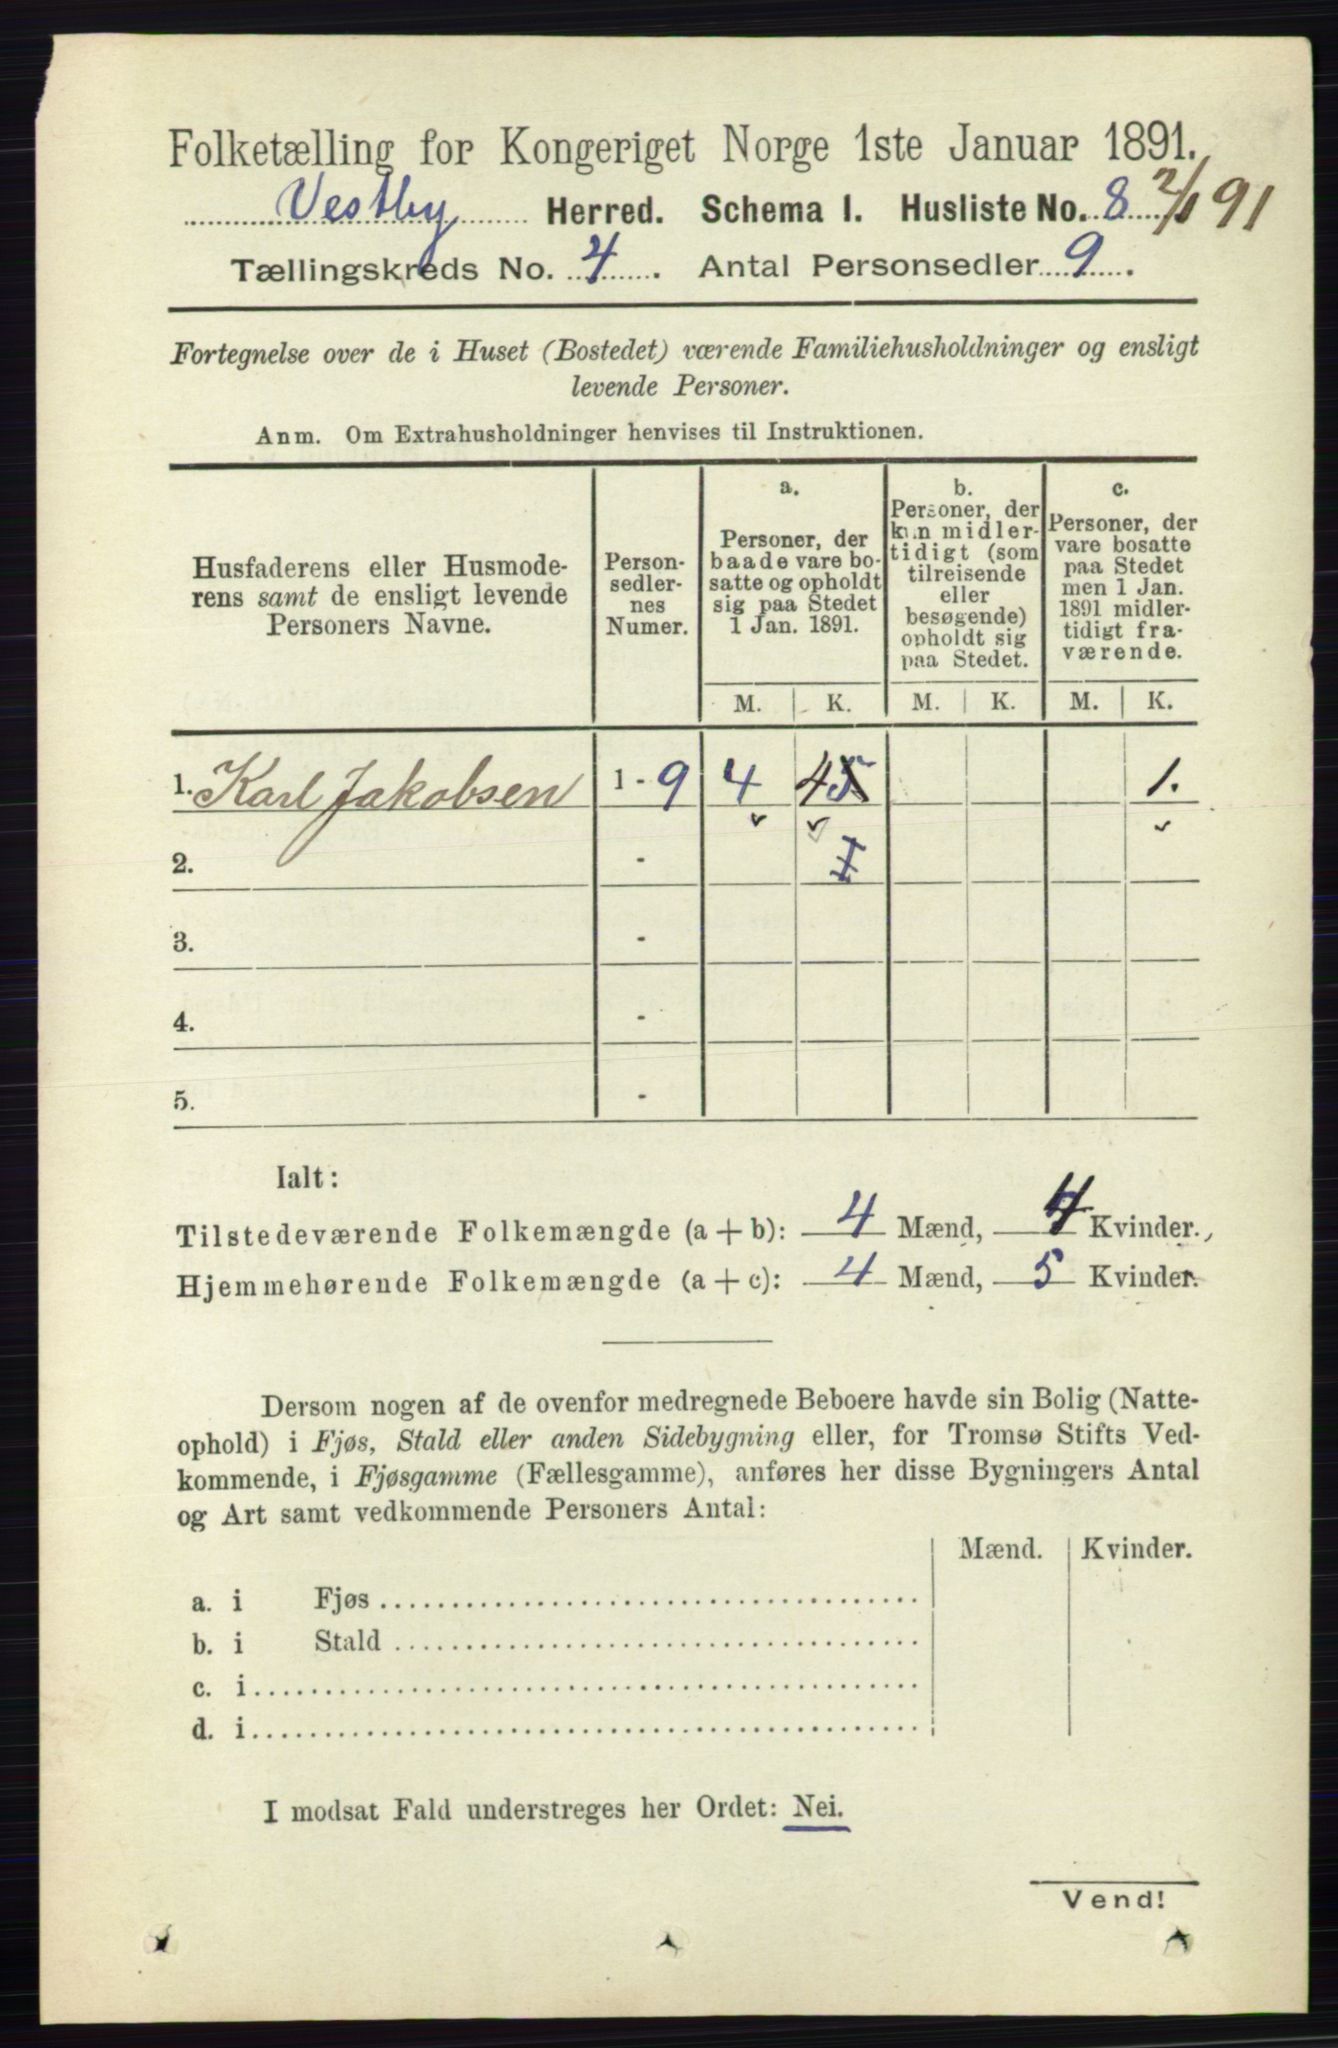 Folketælling for Kongeriget Norge 1ste Januar 1891.
Vestby Herred. Schema I. Husliste No. 8 2/1 91
Tællingskreds No. 4. Antal Personsedler 9.
Fortegnelse over de i Huset (Bostedet) værende Familiehusholdninger og ensligt
levende Personer.
Anm. Om Extrahusholdninger henvises til Instruktionen.
Husfaderens eller Husmode-
rens samt de ensligt levende
Personers Navne.
Person-
sedler-
nes
Numer.
a.
Personer, der
baade vare bo-
satte og opholdt
sig paa Stedet
1 Jan. 1891.
b.
Personer, der
kun midler-
tidigt (som
tilreisende
eller
besøgende)
opholdt sig
paa Stedet.
c.
Personer, der
vare bosatte
paa Stedet
men 1 Jan.
1891 midler-
tidigt fra-
værende.
M. K. M. K. M. K.
1. Karl Jakobsen 1 - 9 4 4 5 1.
2. -
3. -
4. -
5. -
Ialt:
Tilstedeværende Folkemængde (a + b): 4 Mænd, 4 Kvinder.
Hjemmehørende Folkemængde (a + c): 4 Mænd, 5 Kvinder.
Dersom nogen af de ovenfor medregnede Beboere havde sin Bolig (Natte-
ophold) i Fjøs, Stald eller anden Sidebygning eller, for Tromsø Stifts Ved-
kommende, i Fjøsgamme (Fællesgamme), anføres her disse Bygningers Antal
og Art samt vedkommende Personers Antal:
Mænd. Kvinder.
a. i Fjøs
b. i Stald
c. i
d. i
I modsat Fald understreges her Ordet: Nei.
Vend!